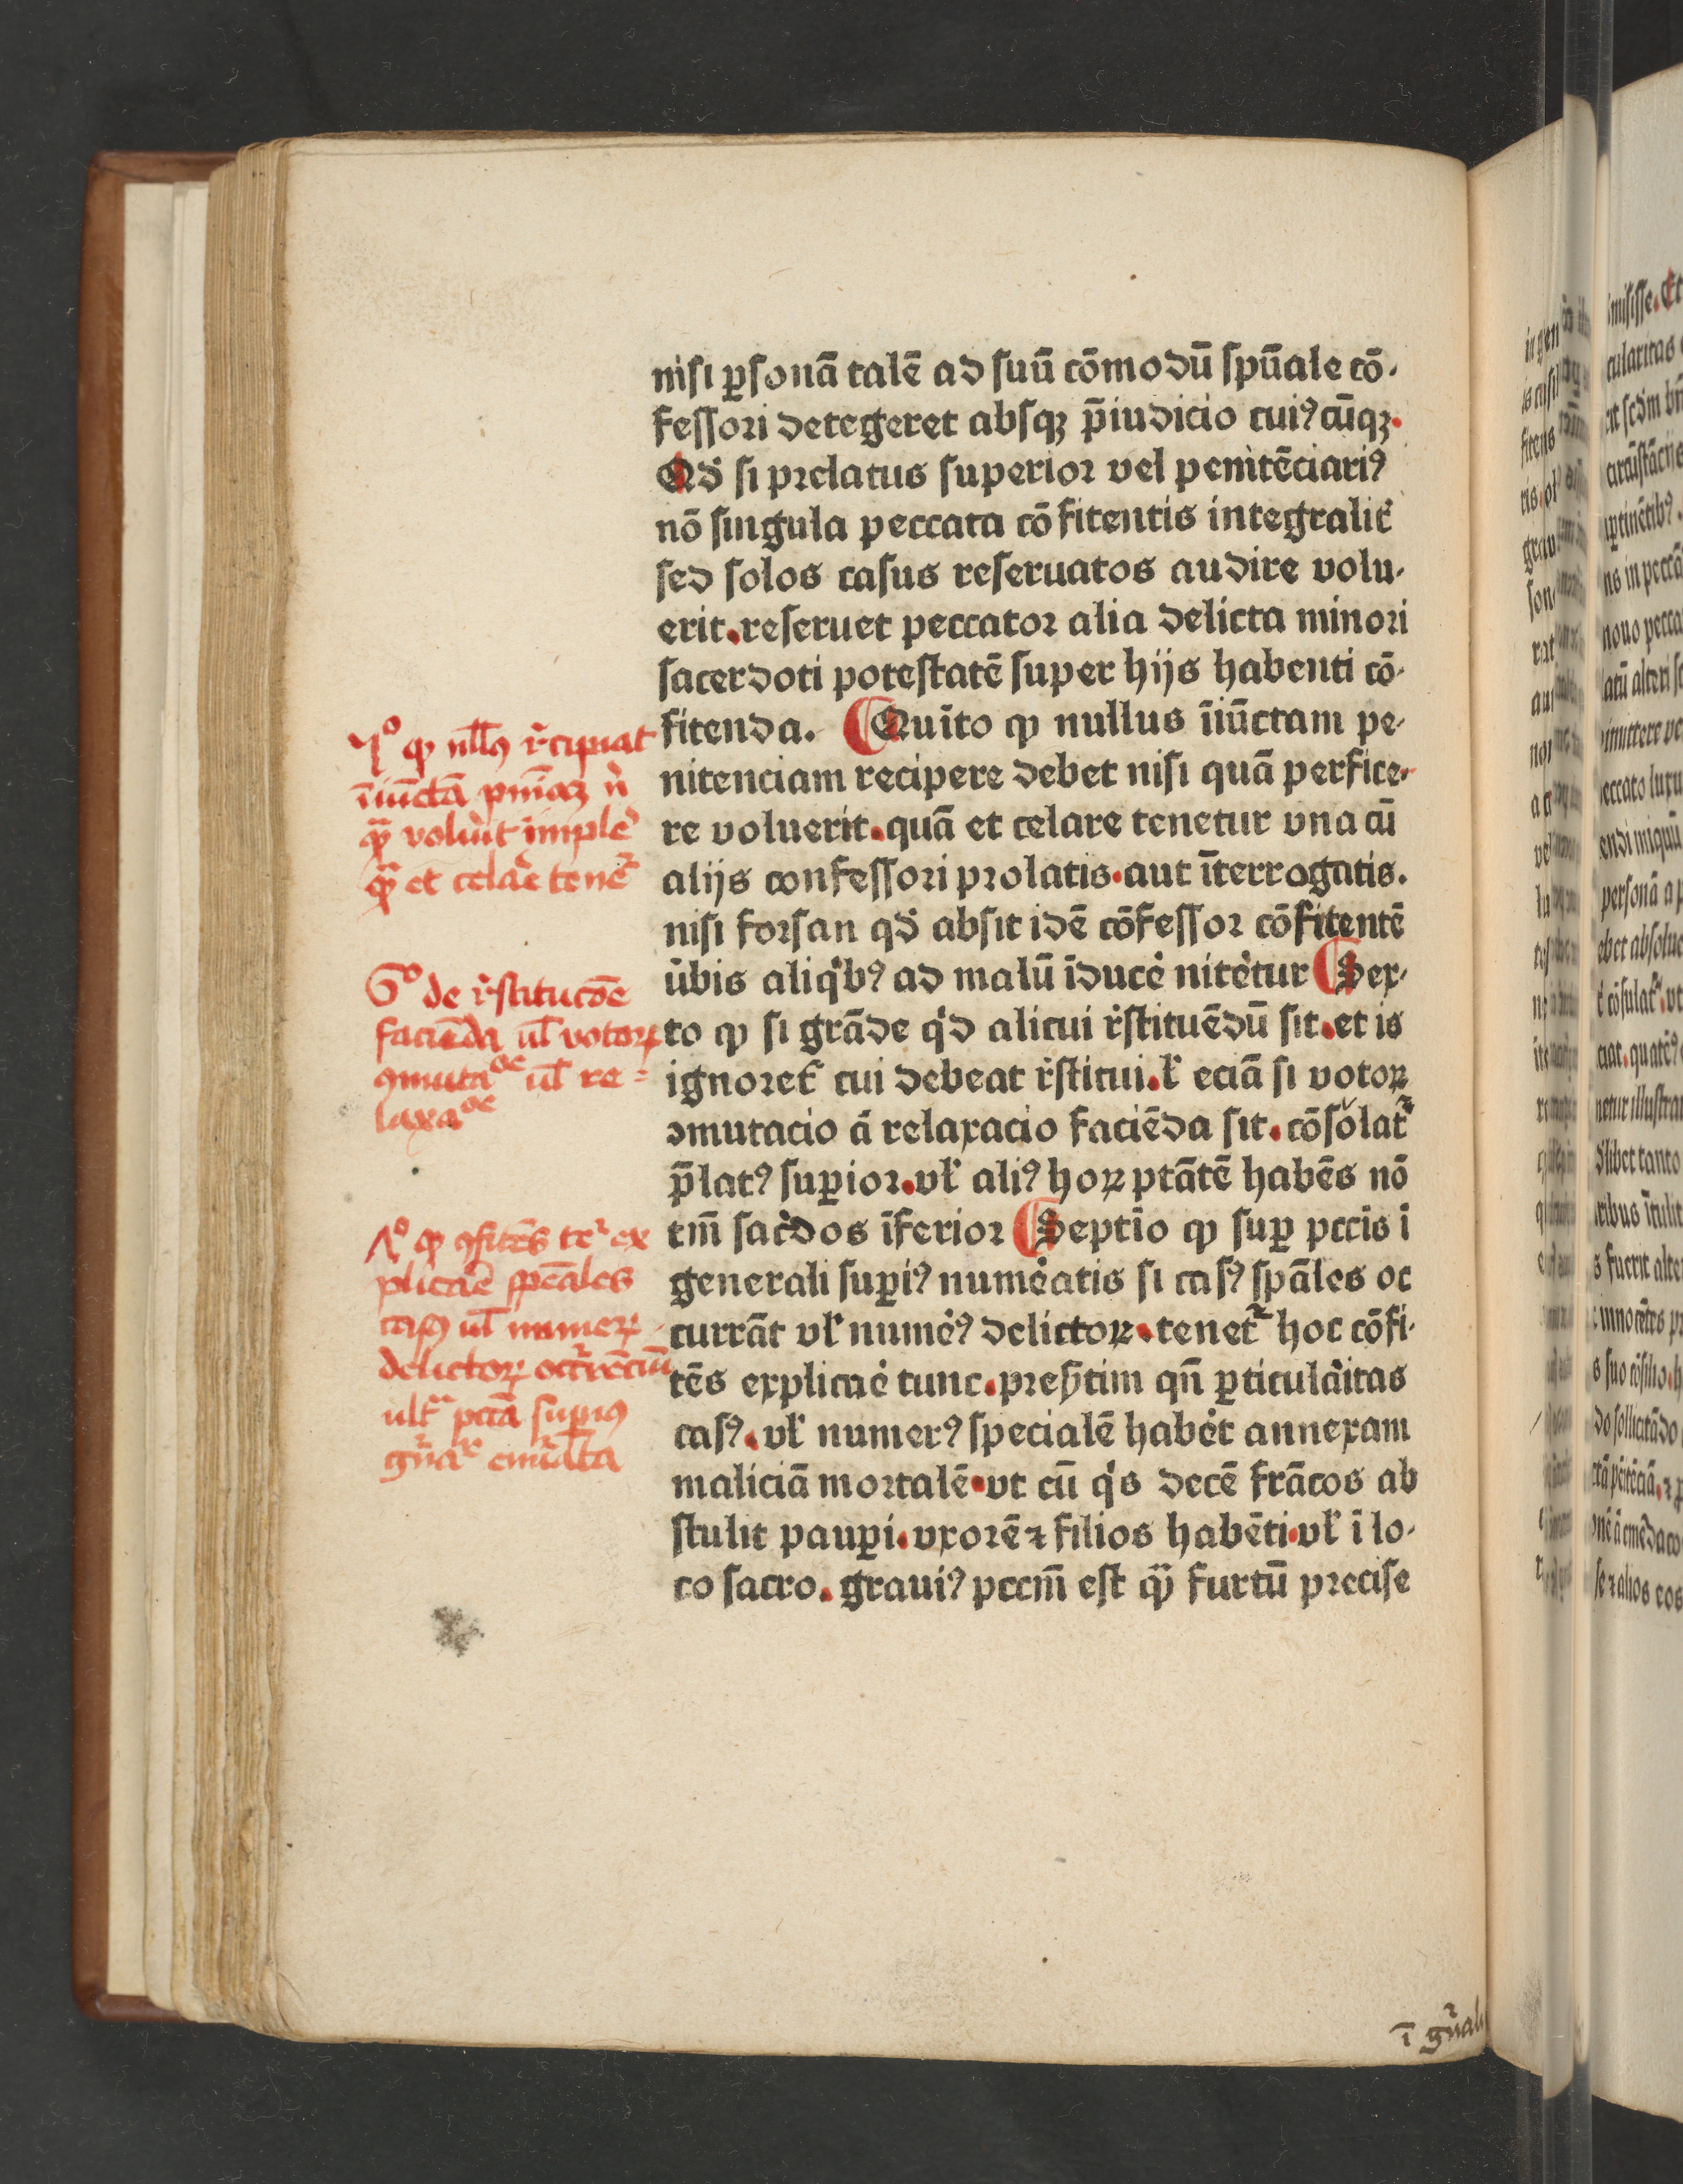 nisi ꝑsonā talē ad suū cōmodū spūale cō-
fessori detegeret absqꝫ p̄iudicio cuiꝰcūqꝫ.
Qd̓ si prelatus superior vel penitēciariꝰ
nō singula peccata cōfitentis integralit̓
sed solos casus reseruatos audire volu-
erit.reseruet peccator alia delicta minori
sacerdoti potestatē super hijs habenti cō-
fitenda. Quīto ꝙ nullus īiūctam pe-
nitenciam recipere debet nisi quā perfice-
re voluerit.quā et celare tenetur vna cū
alijs confessori prolatis.aut īterrogatis.
nisi forsan qd̓ absit idē cōfessor cōfitentē
ūbis aliqͥbꝰ ad malū īducẻ nitētur Sex-
to ꝙ si grāde qͥd alicui r̓stituēdū sit.et is
ignoret̓ cui debeat r̓stitui.l̓ eciā si votoꝝ
ɔmutacio ā relaxacio faciēda sit.cōsolat᷑
p̄latꝰ suꝑior.vl̓ aliꝰ hoꝝ ptātē habēs nō
tm̄ sac̓dos īferior Septīo ꝙ suꝑ pccis ī
generali suꝑiꝰ numẻatis si casꝰ spāles oc
currāt vl̓ numẻꝰ delictoꝝ.tenet᷑ hoc cōfi-
tēs explicaẻ tunc.presertim qn̄ ꝑticulāitas
casꝰ.vl̓ numerꝰ specialē habēt annexam
maliciā mortalē.vt cū qͥs decē frācos ab
stulit pauꝑi.vxorē ⁊ filios habēti.vl̓ ī lo-
co sacro. grauiꝰ pccm̄ est qͣ̄ furtū precise
5º ꝙ nullꝰ r̓cipiat
īiūctā pn̄iaꝫ n̓
qͣ̄ volūit īmplẻ
qͣ̄ et celaẻ tenet᷑
6º de r̓stitucōe
faciēda ul̄ votoꝝ
ꝯmutaᵒᵉ ul̄ re=
laxaᵒᵉ
7º ꝙ ꝯfitēs tet᷑ ex
plicaẻ spēales
casꝰ ul̄ numeꝝ
delictoꝝ occ᷑rēciū
ult᷑ᵃ pccā suꝑiꝰ
ī gn̄ali